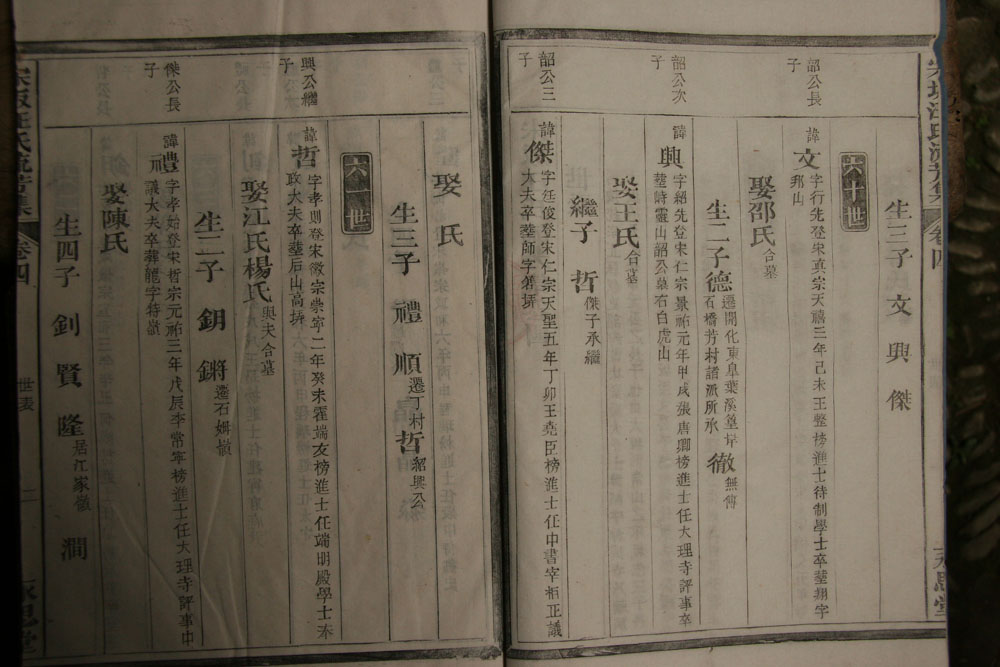 生三子 文 興 傑
六十世
韶公長子
諱文字行先登宋真宗天禧三年己未王整榜進士待制學士卒塟翔字邦山
娶邵氏合墓
生二子德遷開化東阜葉溪篁岸石橋芳村諸派所承 徹無傳
韶公次子
諱興字紹先登宋仁宗景祐元年甲戌張唐卿榜進士任大理寺評事卒塟詩靈山韶公墓右白虎山
娶王氏合墓
繼子 哲傑子承繼
韶公三子
諱傑字廷俊登宋仁宗天聖五年丁卯王堯臣榜進士任中書宰相正議大夫卒塟師字箬坪
娶 氏
生三子 禮 順遷丁村 哲紹興公
六一世
興公繼子
諱哲字孝則登宋徽宗崇寧二年癸未霍端友榜進士任端明殿學士奉政大夫卒塟后山高坪
娶江氏楊氏與夫合墓
生二子 鈅 鏘遷石姆嶺
傑公長子
諱禮字孝始登宋哲宗元祐三年戊辰李常寧榜進士任大理寺評事中議大夫卒葬龍字特嶺
娶陳氏
生四子 釗 賢 隆居江家嶺 澗
卷四
世表
永思堂